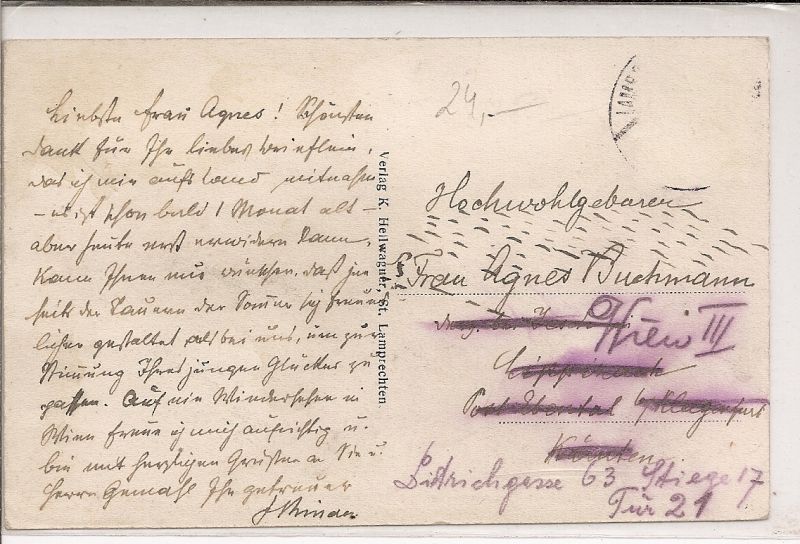 Liebste Frau Agnes! Schönsten
Dank für Ihr liebes Brieflein,
das ich mir aufs Land mitnahm
– es ist schon bald 1 Monat alt –
aber heute erst erwidern kann.
Kann Ihnen nur wünschen, daß jen
seits der Tauern der Sommer sich freund
licher gestaltet als bei uns, um zur
Stimmung Ihres jungen Glückes zu
passen. Auf ein Wiedersehen in
Wien freue ich mich aufrichtig u.
bin mit herzlichen Grüßen an Sie u.
Herrn Gemahl Ihr getreuer
Verlag K. Heilwagner, St. Lamprechten.
24,–
Hochwohlgeboren
Frau Agnes Buchmann
Wien III
Post Ebental b/Klagenfurt
Kärnten
Dietrichgasse 63 Stiege 17
Tür 21